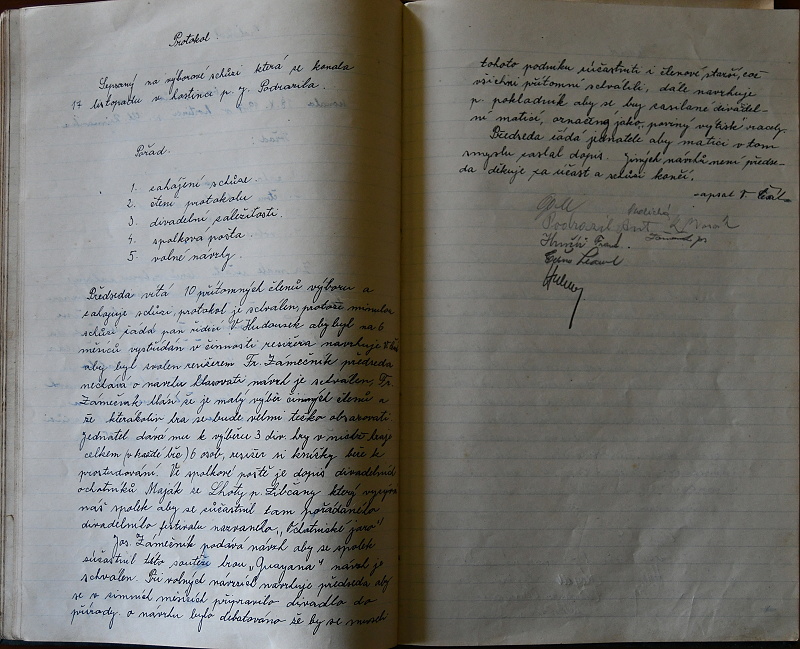 Protokol.
Sepsaný na výborové schůzi která se konala
17 listopadu v hostinci p. g. Podrazila.
Pořad.
1. zahájení schůze.
2. čtení protokolu
3. divadelní záležitosti.
4. spolková pošta
5. volné návrhy.
Předseda vítá 10 přítomných členů výboru a
zahajuje schůzi, protokol je schválen, protože minulou
schůzi žádá pan řídící V. Hudousek aby byl na 6
měsíců vystřídán v činnosti resižéra navrhuje
aby byl zvolen resižérem Fr. Zámečník předseda
nechává o návrhu hlasovati návrh je schválen, Fr.
Zámečník hlásí že je malý výběr činných členů a
že kterákoliv hra se bude velmi těžko obsazovati.
Jednatel dává mu k výběru 3 div. hry v nichž hraje
celkem (v každé hře) 6 osob, resižér si knížky béře k
prostudování. Ve spolkové poště je dopis divadelních
ochotníků Maják ze Lhoty p. Libčany který vyzývá
náš spolek aby se súčastnil tam pořádaného
divadelního festivalu nazvaného, „Ochotnické jaro"
Jos. Zámečník podává návrh aby se spolek
súčastnil této soutěže hrou „Guayana" návrh je
schválen. Při volných návrzích navrhuje předseda aby
se v zimních měsících připravilo divadlo do
přírody. o návrhu bylo debatováno že by se museli
tohoto podniku súčastniti i členové starší, což
všichni přítomní schválili, dále navrhuje
p. pokladník aby se hry zasílané divadel-
ní maticí, označeny jako, poviný výtisk vracely.
Předseda žádá jednatele aby matici v tom
smyslu zaslal dopis. Jiných návrhů není předse-
da děkuje za účast a schůzi končí.
Podrazil Ant